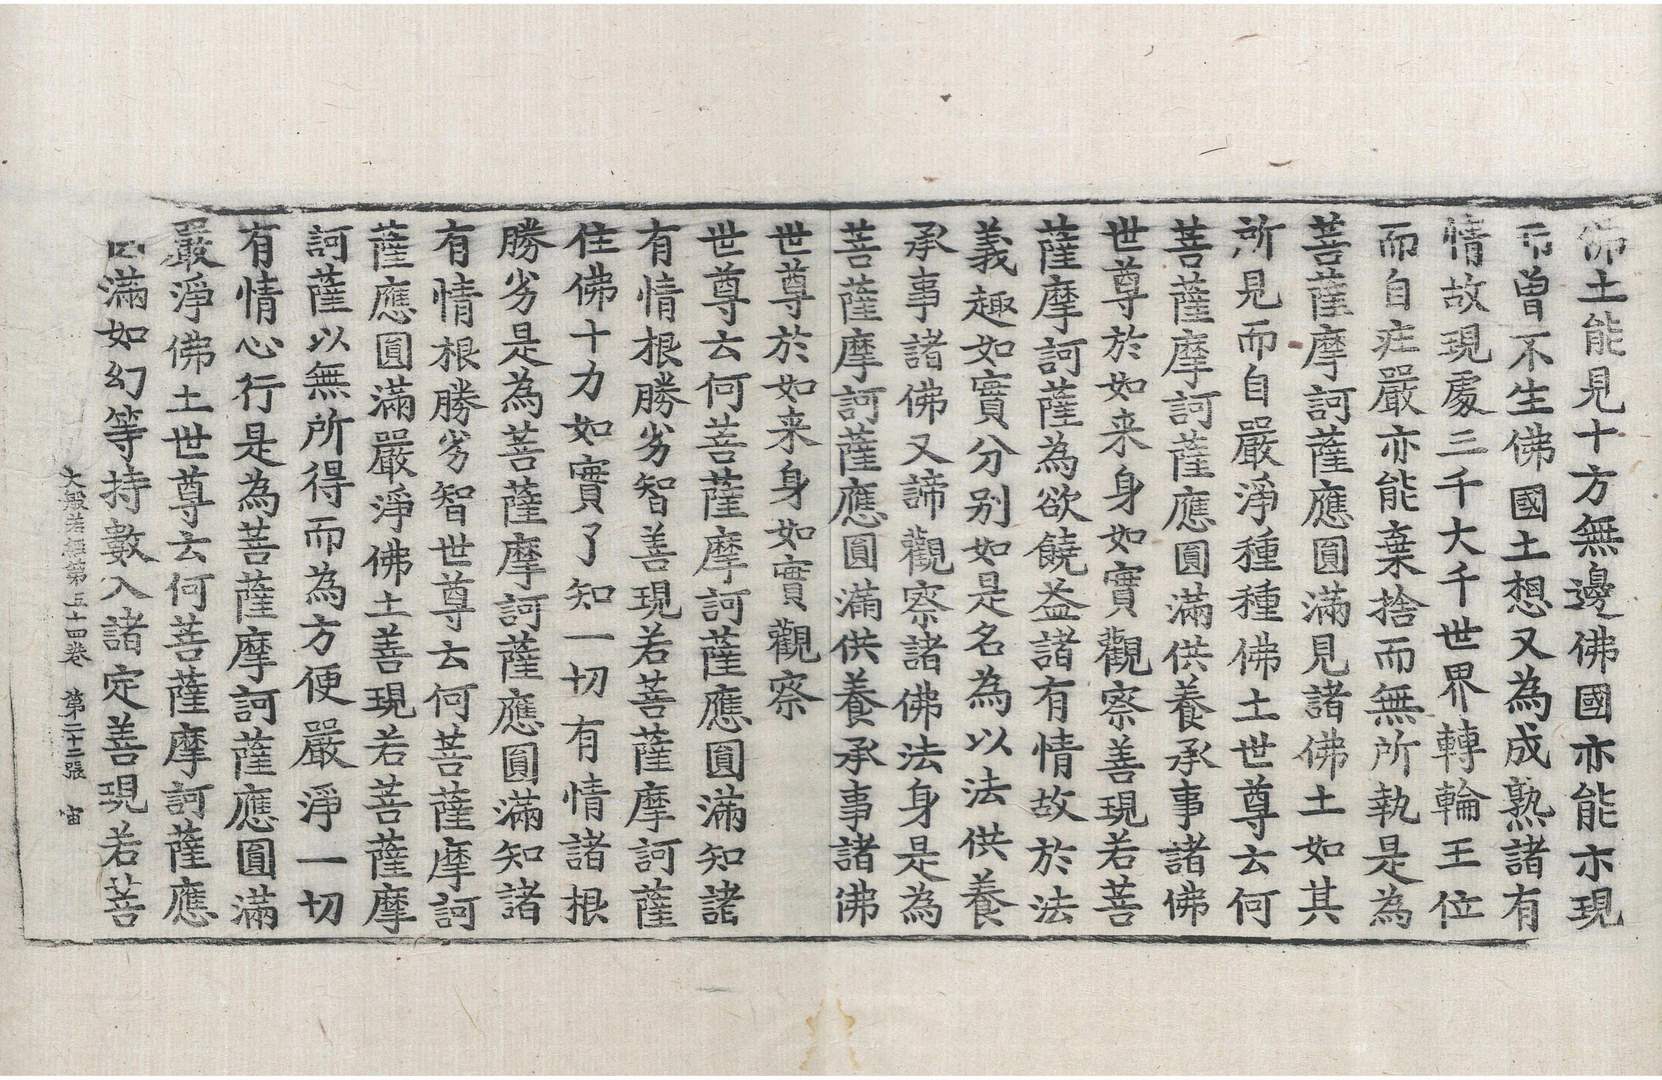 佛土能見十方無邊佛國亦能示現
而曾不生佛國土想又為成熟諸有
情故現處三千大千世界轉輪王位
而自庄嚴亦能棄捨而無所執是為
菩薩摩訶薩應圓滿見諸佛土如其
所見而自嚴淨種種佛土世尊云何
菩薩摩訶薩應圓滿供養承事諸佛
世尊於如来身如實觀察善現若菩
薩摩訶薩為欲饒益諸有情故於法
義趣如實分別如是名為以法供養
承事諸佛又諦觀察諸佛法身是為
菩薩摩訶薩應圓滿供養承事諸佛
世尊於如来身如實觀察
世尊云何菩薩摩訶薩應圓滿知諸
有情根勝劣智善現若菩薩摩訶薩
住佛十力如實了知一切有情諸根
勝劣是為菩薩摩訶薩應圓滿知諸
有情根勝劣智世尊云何菩薩摩訶
薩應圓滿嚴淨佛土善現若菩薩摩
訶薩以無所得而為方便嚴淨一切
有情心行是為菩薩摩訶薩應圓滿
嚴淨佛土世尊云何菩薩摩訶薩應
圓滿如幻等持數入諸定善現若菩
大般若經第五十四卷 第二十二張 宙